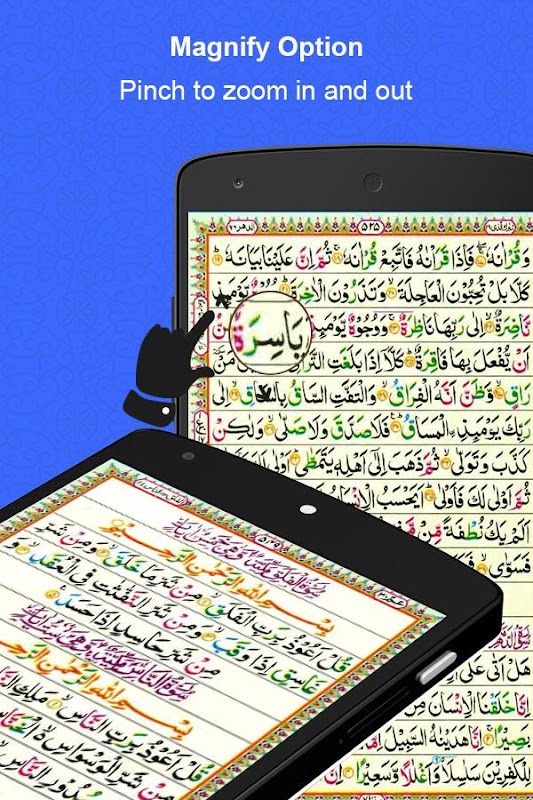 Magnify Option
Pinch to zoom in and out
٥٢٥
وَقُرْاٰنَهٗ ۚ فَاِذَا قَرَاْنٰهُ فَاتَّبِعْ قُرْاٰنَهٗ ۚ ثُمَّ اِنَّ عَلَيْنَا بَيَانَهٗ
كَلَّا بَلْ تُحِبُّوْنَ الْعَاجِلَةَ وَتَذَرُوْنَ الْاٰخِرَةَ يَّوْمَئِذٍ
نَّاضِرَةٌ اِلٰى رَبِّهَا نَاظِرَةٌ وَوُجُوْهٌ يَّوْمَئِذٍ
بَاسِرَةٌ
اَنْ يُّفْعَلَ بِهَا فَاقِرَةٌ كَلَّا اِذَا بَلَغَتِ مَنْ
رَاقٍ وَّظَنَّ اَنَّهُ الْفِرَاقُ وَالْتَفَّتِ السَّاقُ بِالسَّاقِ اِلٰى
رَبِّكَ يَوْمَئِذِ ۨالْمَسَاقُ فَلَا صَدَّقَ وَلَا صَلّٰى وَلٰكِنْ
كَذَّبَ وَتَوَلّٰى ثُمَّ ذَهَبَ اِلٰٓى اَهْلِهٖ يَتَمَطّٰى اَوْلٰى لَكَ
ثُمَّ اَوْلٰى لَكَ فَاَوْلٰى اَيَحْسَبُ الْاِنْسَانُ
اَلَمْ يَكُ نُطْفَةً مِّنْ
فَسَوّٰى
هَلْ اَتٰى عَلَى
اِنَّا خَلَقْنَا الْاِنْسَانَ مِنْ
بَصِيْرًا اِنَّا هَدَيْنٰهُ السَّبِيْلَ اِمَّا
لِلْكٰفِرِيْنَ سَلٰسِلَا۟ وَاَغْلٰلًا وَّسَعِيْرًا اِنَّ
بِسْمِ اللهِ الرَّحْمٰنِ الرَّحِيْمِ
قُلْ اَعُوْذُ بِرَبِّ الْفَلَقِ مِنْ شَرِّ مَا خَلَقَ وَمِنْ شَرِّ
غَاسِقٍ اِذَا وَقَبَ وَمِنْ شَرِّ النَّفّٰثٰتِ فِي الْعُقَدِ وَ
مِنْ شَرِّ حَاسِدٍ اِذَا حَسَدَ
بِسْمِ اللهِ الرَّحْمٰنِ الرَّحِيْمِ
قُلْ اَعُوْذُ بِرَبِّ النَّاسِ مَلِكِ النَّاسِ
مِنْ شَرِّ الْوَسْوَاسِ
صُدُوْرِ النَّاسِ